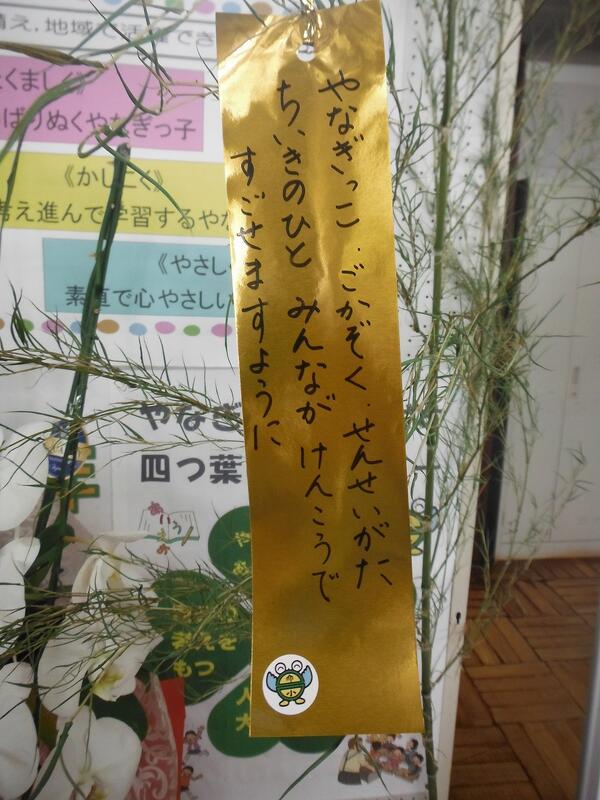 やなぎっこ.ごかぞく.せんせいがた
ちいきのひと みんなが けんこうで
すごせますように
地域で活
ばりぬくやなぎっ子
《かしこく》
考え進んで学習するやな
《やさし
素直で心やさしい
やなぎ
四つ葉
あいうえお
考えを
もつ
小